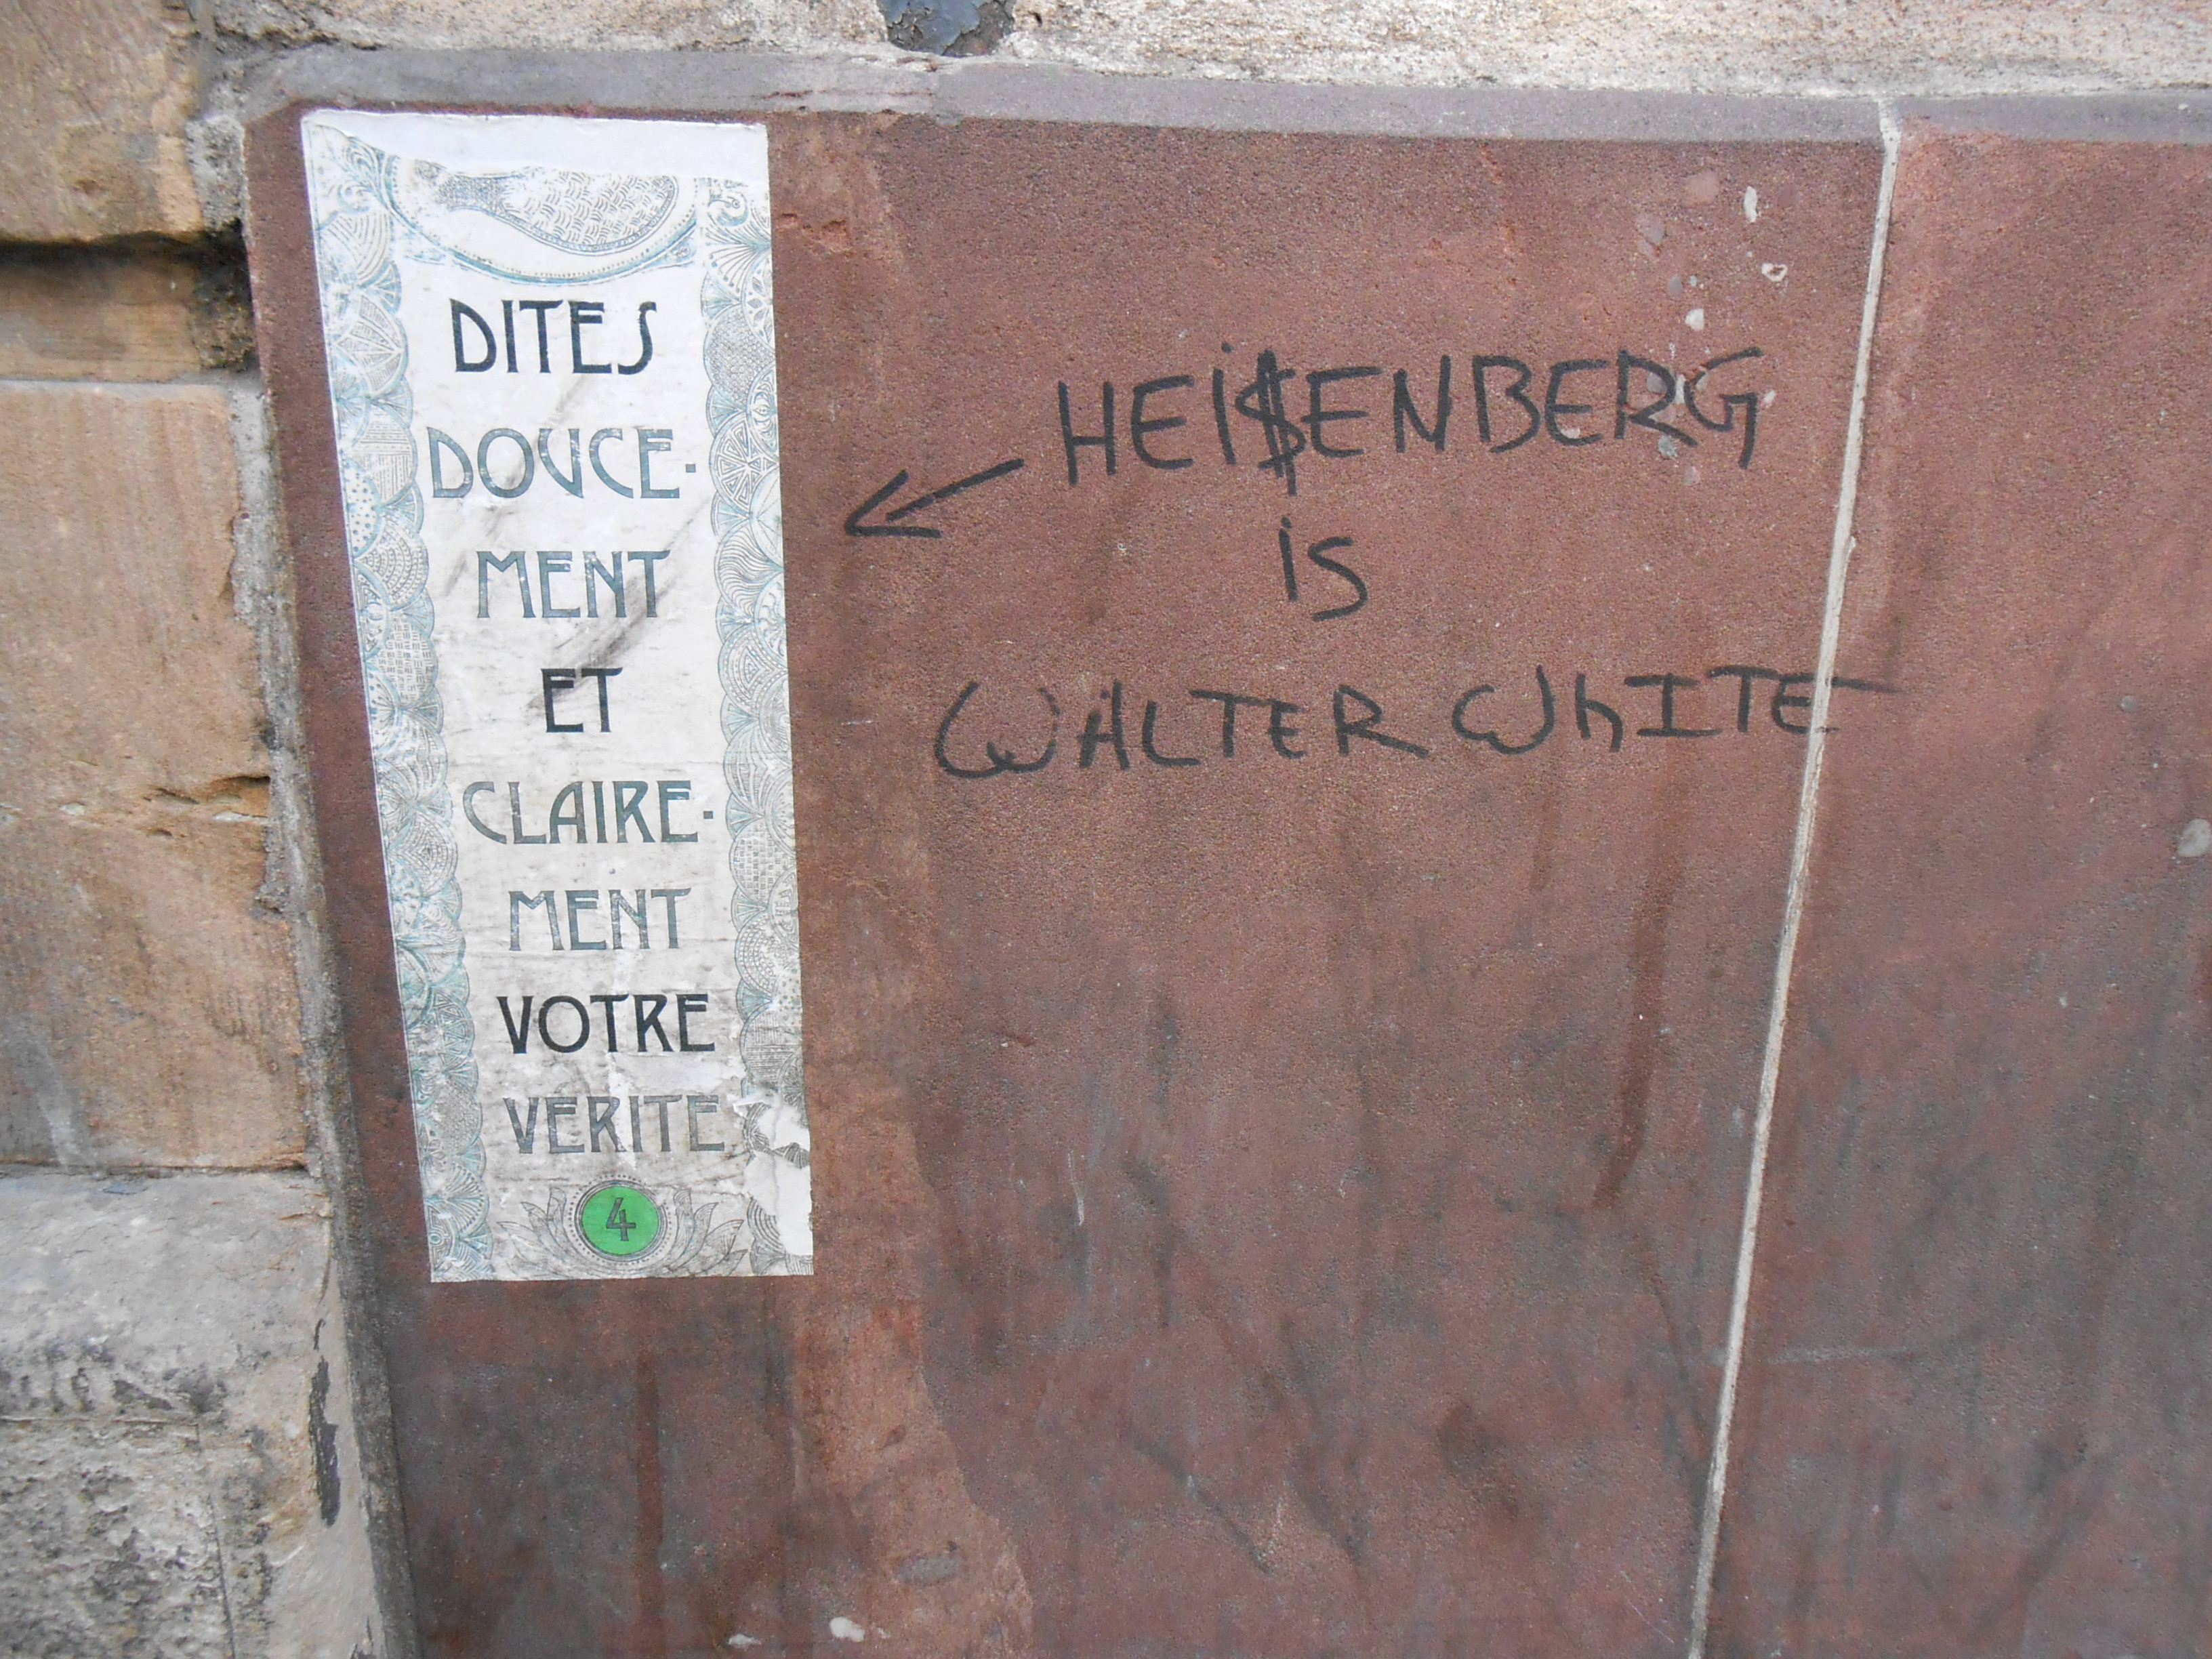 DITES
DOUCE-
MENT
ET
CLAIRE-
MENT
VOTRE
VERITE
4
HEI$ENBERG
iS
WALTER WhITE